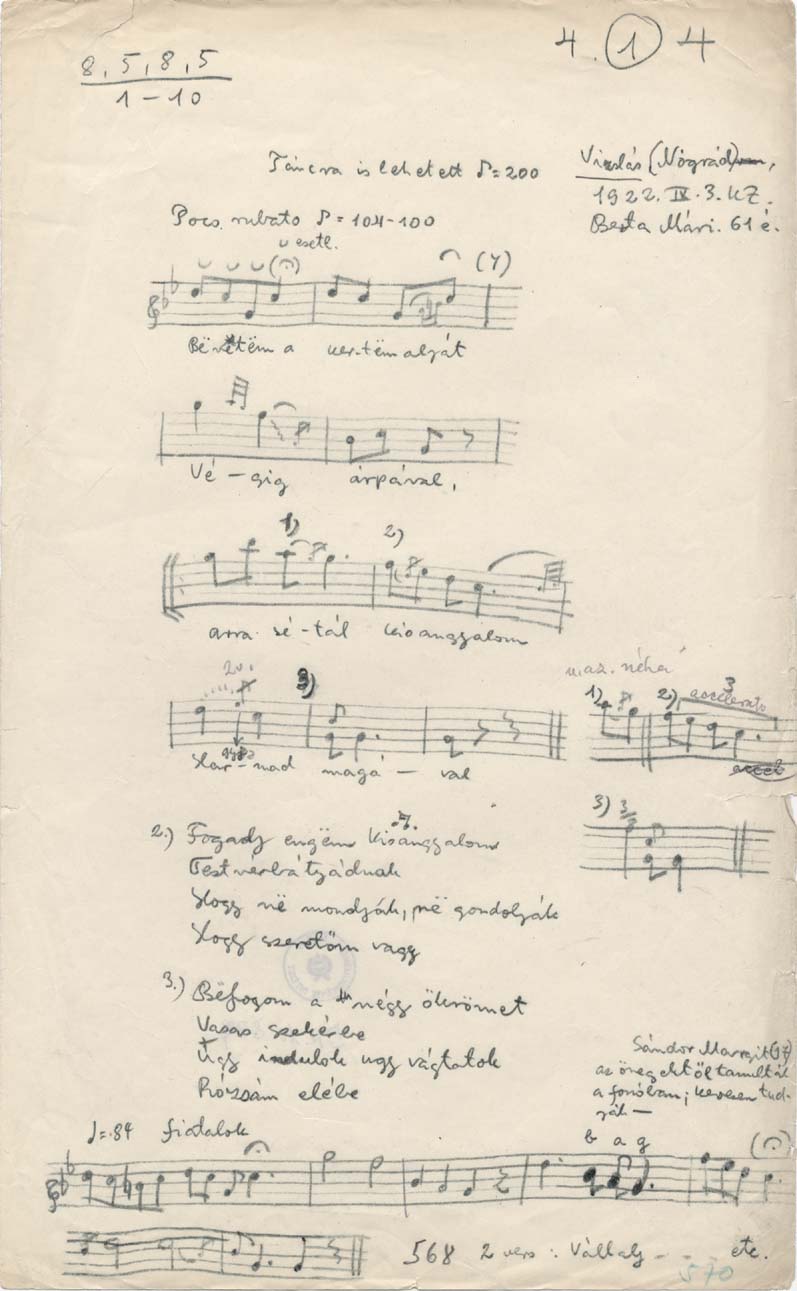 8, 5, 8, 5
1 – 10
4. 1 4
Táncra is lehetett ♪=200
Vizslás (Nógrád),
1922. IV. 3. KZ.
Besta Mári. 61 é.
Poco rubato ♪=104–100
esetl.
Bëvetëm a kertëm alját
Vé – gig árpával,
1) 2)
arra sé – tál kisangyalom
3)
Har – mad magá – val
u. az. néha
1) 2) 3
accelerato
3) 3
2.) Fogadj engëm kisangyalom
Testvérbátyádnak
Hogy në mondják, në gondolják
Hogy szeretöm vagy
3.) Béfogom a négy ökrömet
Vasas szekérbe
Úgy indulok ugy vágtatok
Rózsám elébe
Sándor Margit (17)
az öregektől tanulták
a fonóban; kevesen tud-
ják —
♩=84 fiatalok
b a g
568 2 vers: Vállalj - - - etc.
570